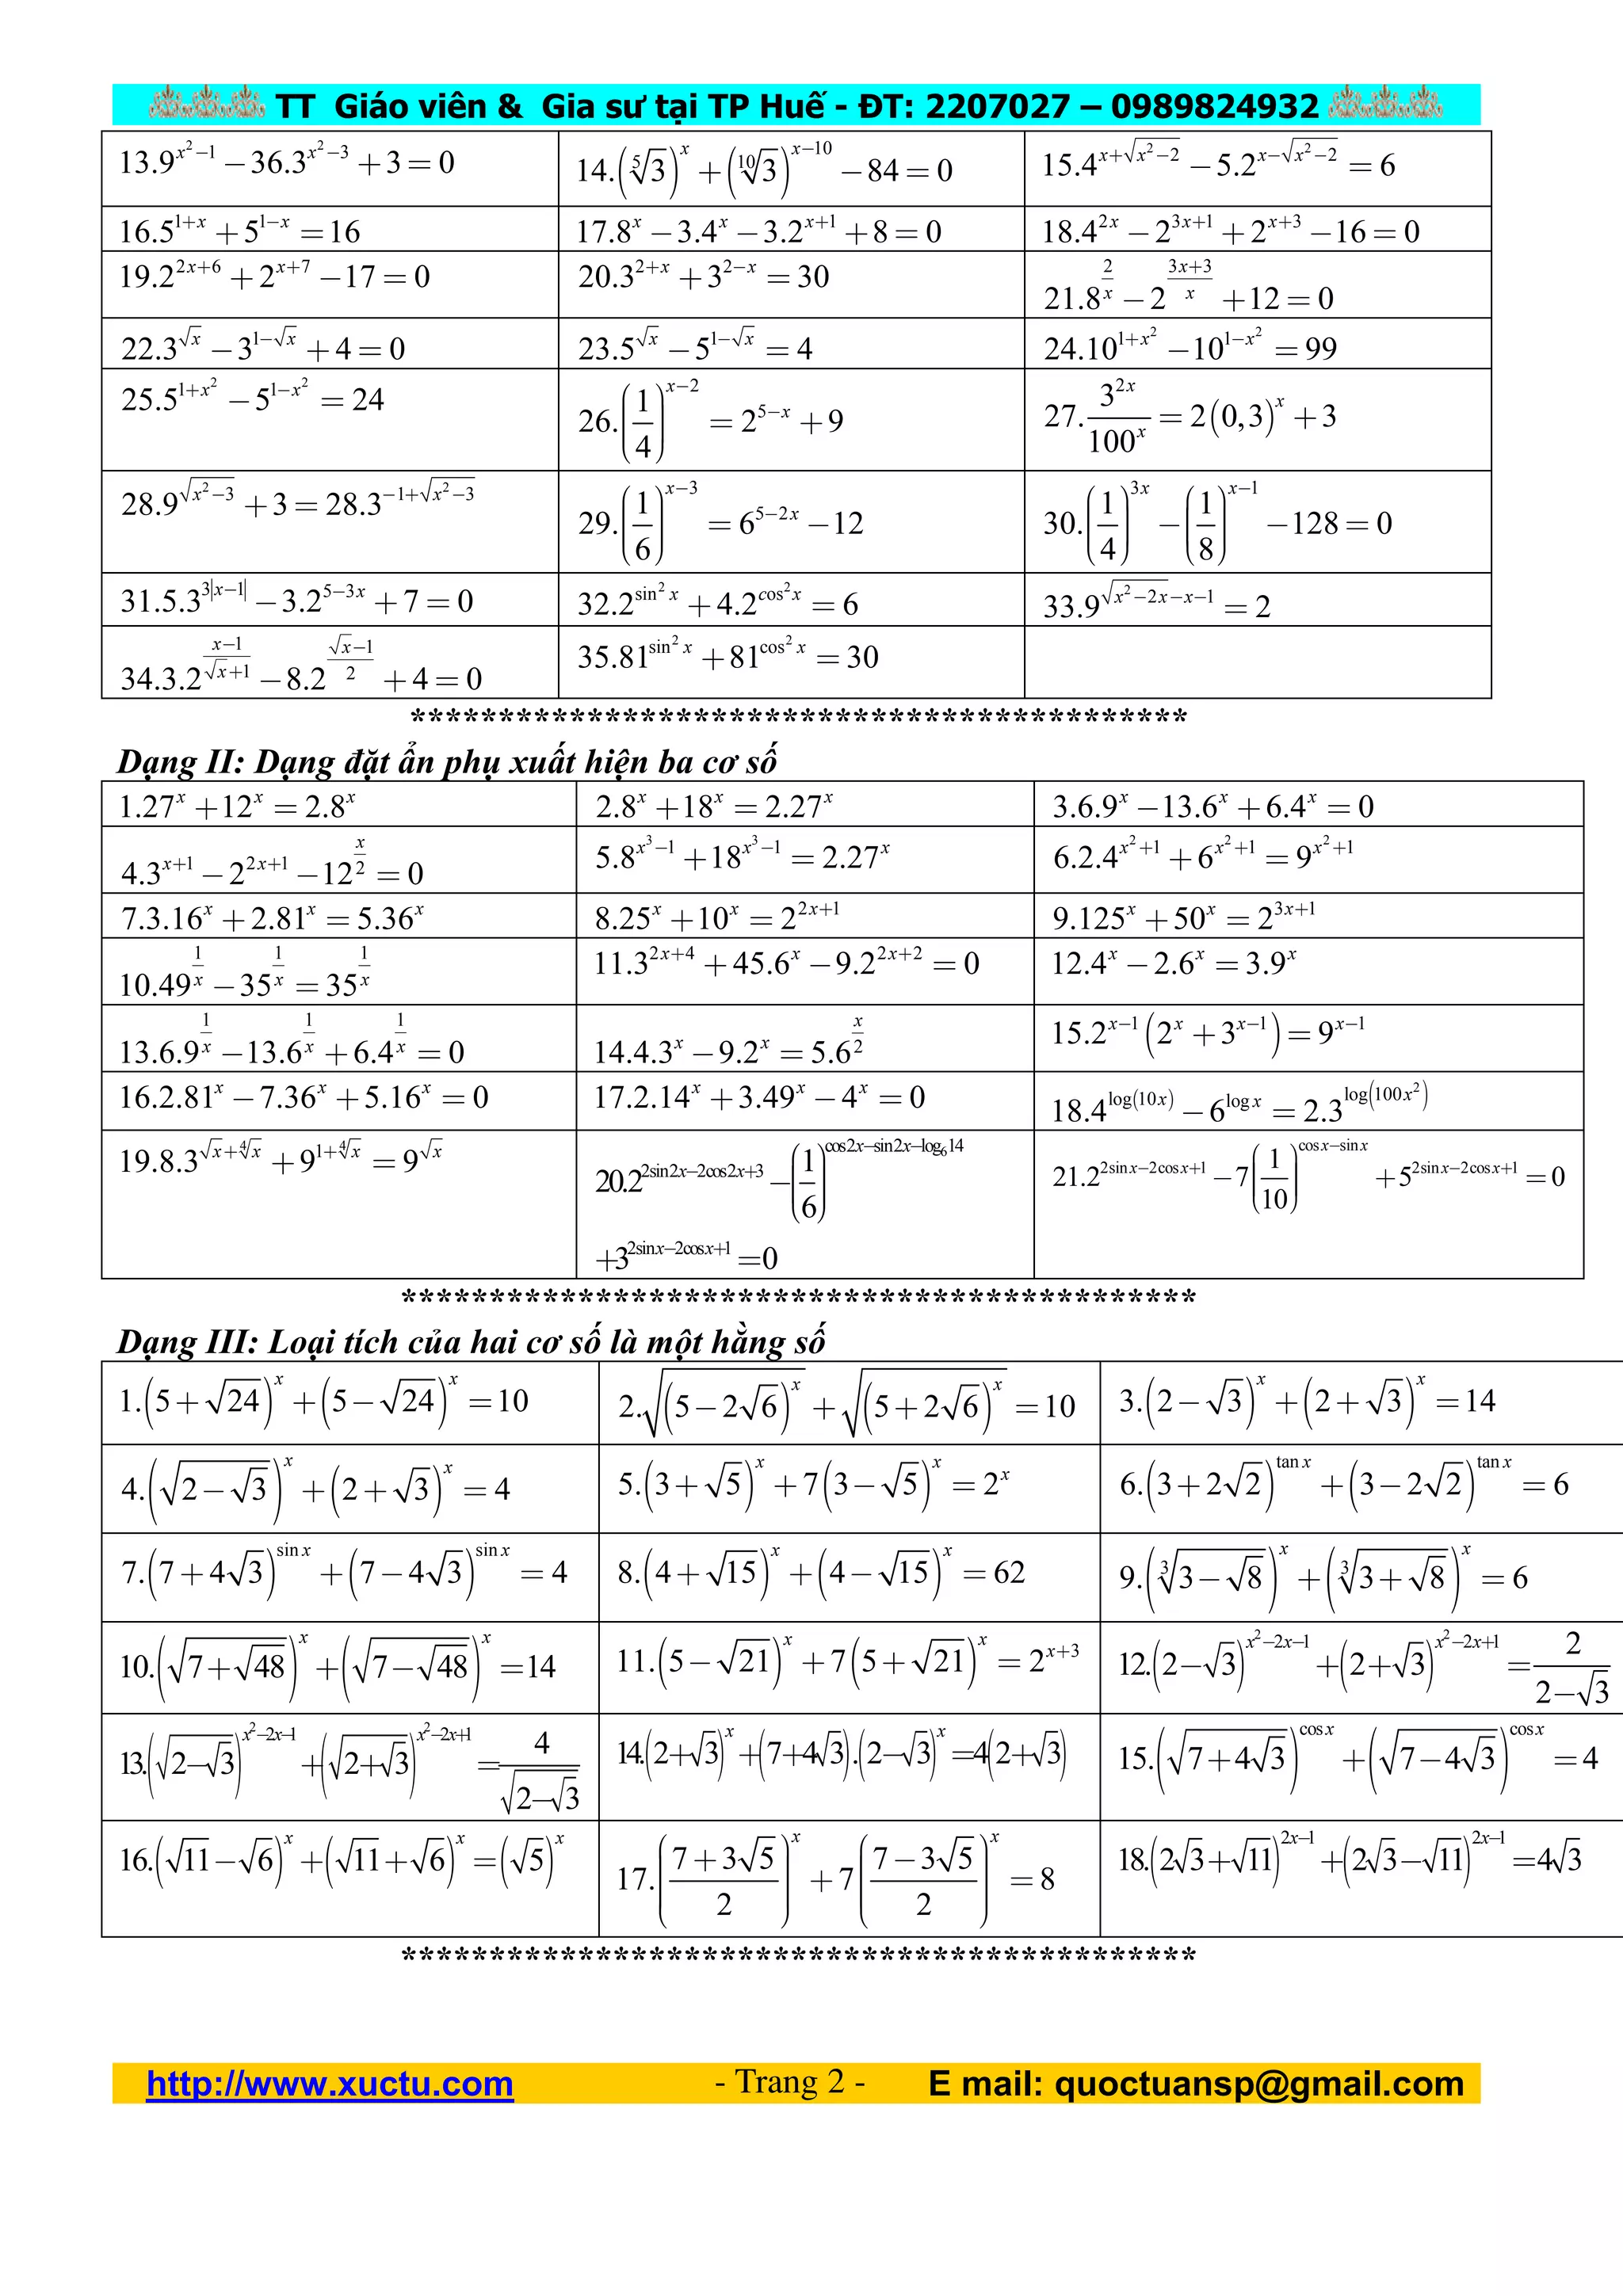 TT Giáo viên & Gia sư tại TP Huế - ĐT: 2207027 – 0989824932
13.9^{x^2-1} − 36.3^{x^2-3} + 3 = 0
14.(\sqrt[5]{3})^x + (\sqrt[10]{3})^{x-10} − 84 = 0
15.4^{x+\sqrt{x^2-2}} − 5.2^{x-\sqrt{x^2-2}} = 6
16.5^{1+x} + 5^{1-x} = 16
17.8^x − 3.4^x − 3.2^{x+1} + 8 = 0
18.4^{2x} − 2^{3x+1} + 2^{x+3} − 16 = 0
19.2^{2x+6} + 2^{x+7} − 17 = 0
20.3^{2+x} + 3^{2-x} = 30
21.8^{\frac{2}{x}} − 2^{\frac{3x+3}{x}} + 12 = 0
22.3^{\sqrt{x}} − 3^{1-\sqrt{x}} + 4 = 0
23.5^{\sqrt{x}} − 5^{1-\sqrt{x}} = 4
24.10^{1+x^2} − 10^{1-x^2} = 99
25.5^{1+x^2} − 5^{1-x^2} = 24
26.(\frac{1}{4})^{x-2} = 2^{5-x} + 9
27.\frac{3^{2x}}{100^x} = 2(0,3)^x + 3
28.9^{\sqrt{x^2-3}} + 3 = 28.3^{-1+\sqrt{x^2-3}}
29.(\frac{1}{6})^{x-3} = 6^{5-2x} − 12
30.(\frac{1}{4})^{3x} − (\frac{1}{8})^{x-1} − 128 = 0
31.5.3^{3|x-1|} − 3.2^{5-3x} + 7 = 0
32.2^{sin^2 x} + 4.2^{cos^2 x} = 6
33.9^{\sqrt{x^2-2x}-x-1} = 2
34.3.2^{\frac{x-1}{\sqrt{x}+1}} − 8.2^{\frac{\sqrt{x}-1}{2}} + 4 = 0
35.81^{sin^2 x} + 81^{cos^2 x} = 30
********************************************
Dạng II: Dạng đặt ẩn phụ xuất hiện ba cơ số
1.27^x + 12^x = 2.8^x
2.8^x + 18^x = 2.27^x
3.6.9^x − 13.6^x + 6.4^x = 0
4.3^{x+1} − 2^{2x+1} − 12^{\frac{x}{2}} = 0
5.8^{x^3-1} + 18^{x^3-1} = 2.27^x
6.2.4^{x^2+1} + 6^{x^2+1} = 9^{x^2+1}
7.3.16^x + 2.81^x = 5.36^x
8.25^x + 10^x = 2^{2x+1}
9.125^x + 50^x = 2^{3x+1}
10.49^{\frac{1}{x}} − 35^{\frac{1}{x}} = 35^{\frac{1}{x}}
11.3^{2x+4} + 45.6^x − 9.2^{2x+2} = 0
12.4^x − 2.6^x = 3.9^x
13.6.9^{\frac{1}{x}} − 13.6^{\frac{1}{x}} + 6.4^{\frac{1}{x}} = 0
14.4.3^x − 9.2^x = 5.6^{\frac{x}{2}}
15.2^{x-1}(2^x + 3^{x-1}) = 9^{x-1}
16.2.81^x − 7.36^x + 5.16^x = 0
17.2.14^x + 3.49^x − 4^x = 0
18.4^{log(10x)} − 6^{log x} = 2.3^{log(100x^2)}
19.8.3^{\sqrt{x}+\sqrt[4]{x}} + 9^{1+\sqrt[4]{x}} = 9^{\sqrt{x}}
20.2^{2sin2x-2cos2x+3} − (\frac{1}{6})^{cos2x-sin2x-log_6 14}
+3^{2sinx-2cosx+1} = 0
21.2^{2sin x-2cos x+1} − 7(\frac{1}{10})^{cos x-sin x} + 5^{2sin x-2cos x+1} = 0
*********************************************
Dạng III: Loại tích của hai cơ số là một hằng số
1.(5 + \sqrt{24})^x + (5 − \sqrt{24})^x = 10
2.\sqrt{(5 − 2\sqrt{6})^x} + \sqrt{(5 + 2\sqrt{6})^x} = 10
3.(2 − \sqrt{3})^x + (2 + \sqrt{3})^x = 14
4.(\sqrt{2 − \sqrt{3}})^x + (2 + \sqrt{3})^x = 4
5.(3 + \sqrt{5})^x + 7(3 − \sqrt{5})^x = 2^x
6.(3 + 2\sqrt{2})^{tan x} + (3 − 2\sqrt{2})^{tan x} = 6
7.(7 + 4\sqrt{3})^{sin x} + (7 − 4\sqrt{3})^{sin x} = 4
8.(4 + \sqrt{15})^x + (4 − \sqrt{15})^x = 62
9.(\sqrt[3]{3 − \sqrt{8}})^x + (\sqrt[3]{3 + \sqrt{8}})^x = 6
10.(\sqrt{7 + \sqrt{48}})^x + (\sqrt{7 − \sqrt{48}})^x = 14
11.(5 − \sqrt{21})^x + 7(5 + \sqrt{21})^x = 2^{x+3}
12.(2 − \sqrt{3})^{x^2-2x-1} + (2 + \sqrt{3})^{x^2-2x+1} = \frac{2}{2 − \sqrt{3}}
13.(\sqrt{2 − \sqrt{3}})^{x^2-2x-1} + (\sqrt{2 + \sqrt{3}})^{x^2-2x+1} = \frac{4}{\sqrt{2 − \sqrt{3}}}
14.(2 + \sqrt{3})^x + (7 + 4\sqrt{3}).(2 − \sqrt{3})^x = 4(2 + \sqrt{3})
15.(\sqrt{7 + 4\sqrt{3}})^{cos x} + (\sqrt{7 − 4\sqrt{3}})^{cos x} = 4
16.(\sqrt{11} − \sqrt{6})^x + (\sqrt{11} + \sqrt{6})^x = (\sqrt{5})^x
17.(\frac{7 + 3\sqrt{5}}{2})^x + 7(\frac{7 − 3\sqrt{5}}{2})^x = 8
18.(2\sqrt{3} + \sqrt{11})^{2x-1} + (2\sqrt{3} − \sqrt{11})^{2x-1} = 4\sqrt{3}
*********************************************
http://www.xuctu.com - Trang 2 - E mail: quoctuansp@gmail.com